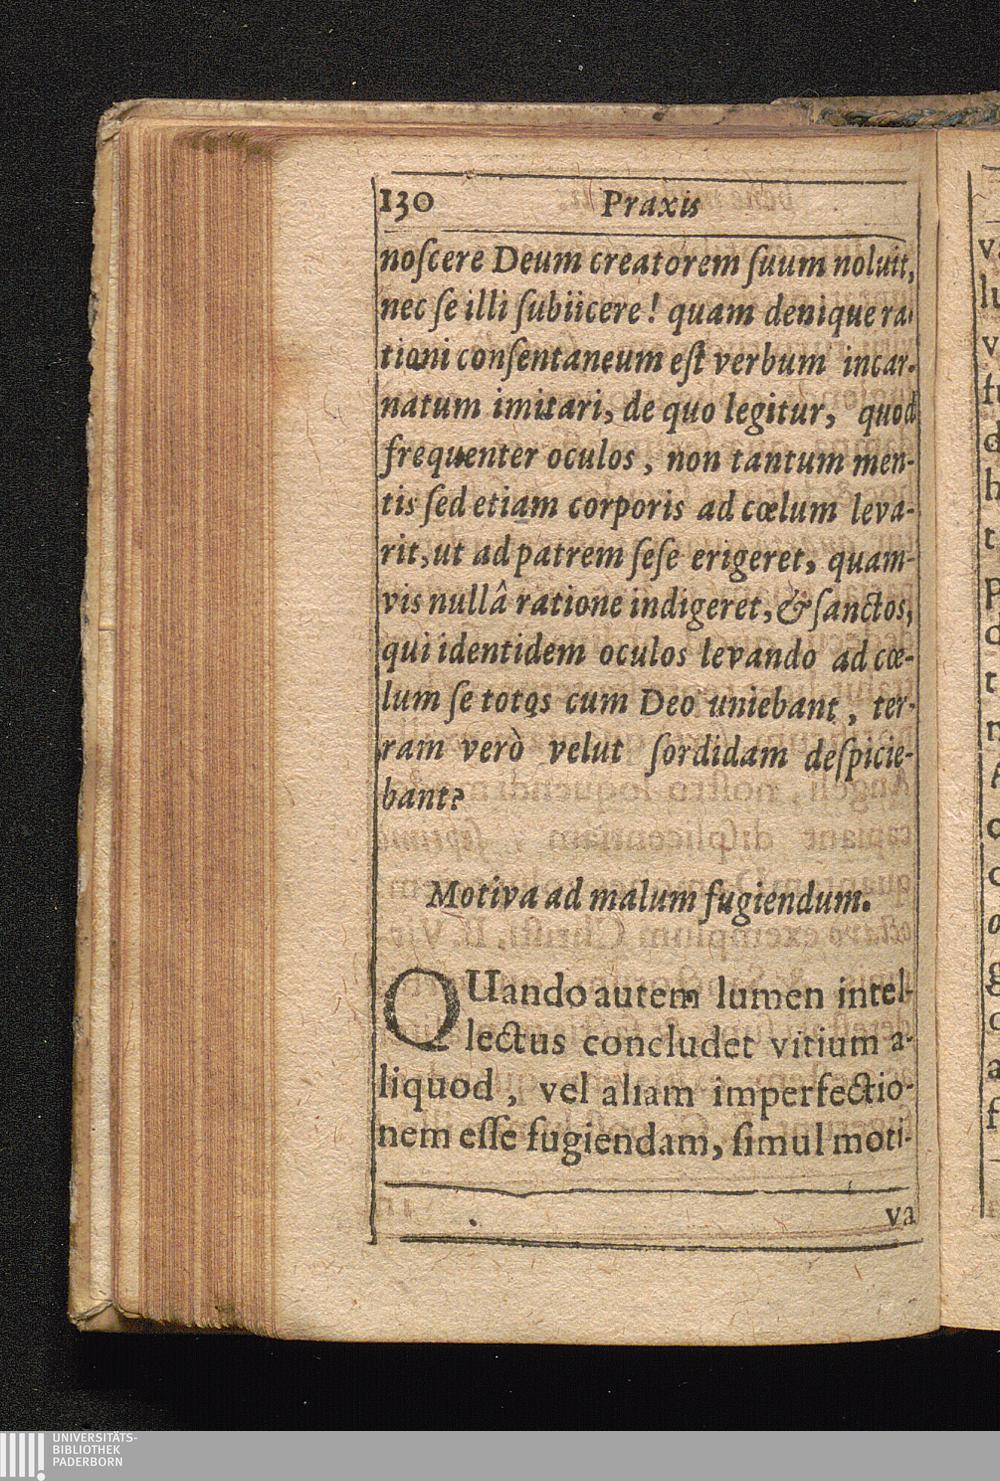 130 Praxis
noſcere Deum creatorem ſuum noluit,
nec ſe illi ſubiicere! quam denique ra-
tioni conſentaneum eſt verbum incar-
natum imitari, de quo legitur, quod
frequenter oculos, non tantum men-
tis ſed etiam corporis ad cœlum leva-
rit, ut ad patrem ſeſe erigeret, quam-
vis nullâ ratione indigeret, & ſanctos,
qui identidem oculos levando ad cœ-
lum ſe totos cum Deo uniebant, ter-
ram verò velut ſordidam deſpicie-
bant?
Motiva ad malum fugiendum.
QUando autem lumen intel-
lectus concludet vitium a-
liquod, vel aliam imperfectio-
nem eſſe fugiendam, ſimul moti-
va
UNIVERSITÄTS-
BIBLIOTHEK
PADERBORN